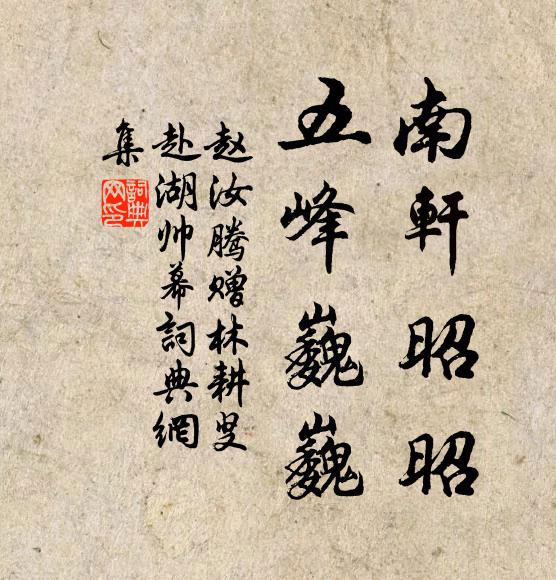 南軒昭昭
五峰巍巍
赵汝腾赠林耕叟
赴湖帅幕詞典網
集
詞典
网印